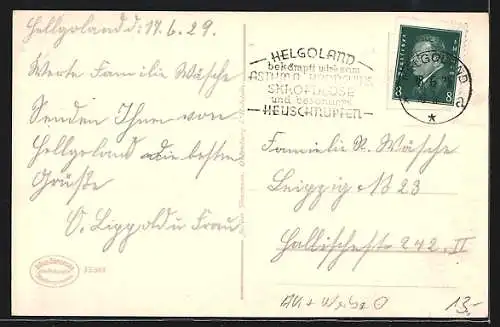 Hellgoland d: 17.6.29.
Werte Familie Wäsche
Senden Ihnen von
Hellgoland die besten
Grüße
O. Lippold u Frau
HELGOLAND
bekämpft wirksam
ASTHMA
SKROFULOSE
und besonders
HEUSCHNUPFEN
HELGOLAND
a
DEUTSCHES REICH
8 8
Familie R. Wäsche
Leipzig N 23
Hallischestr 242 II
13,-